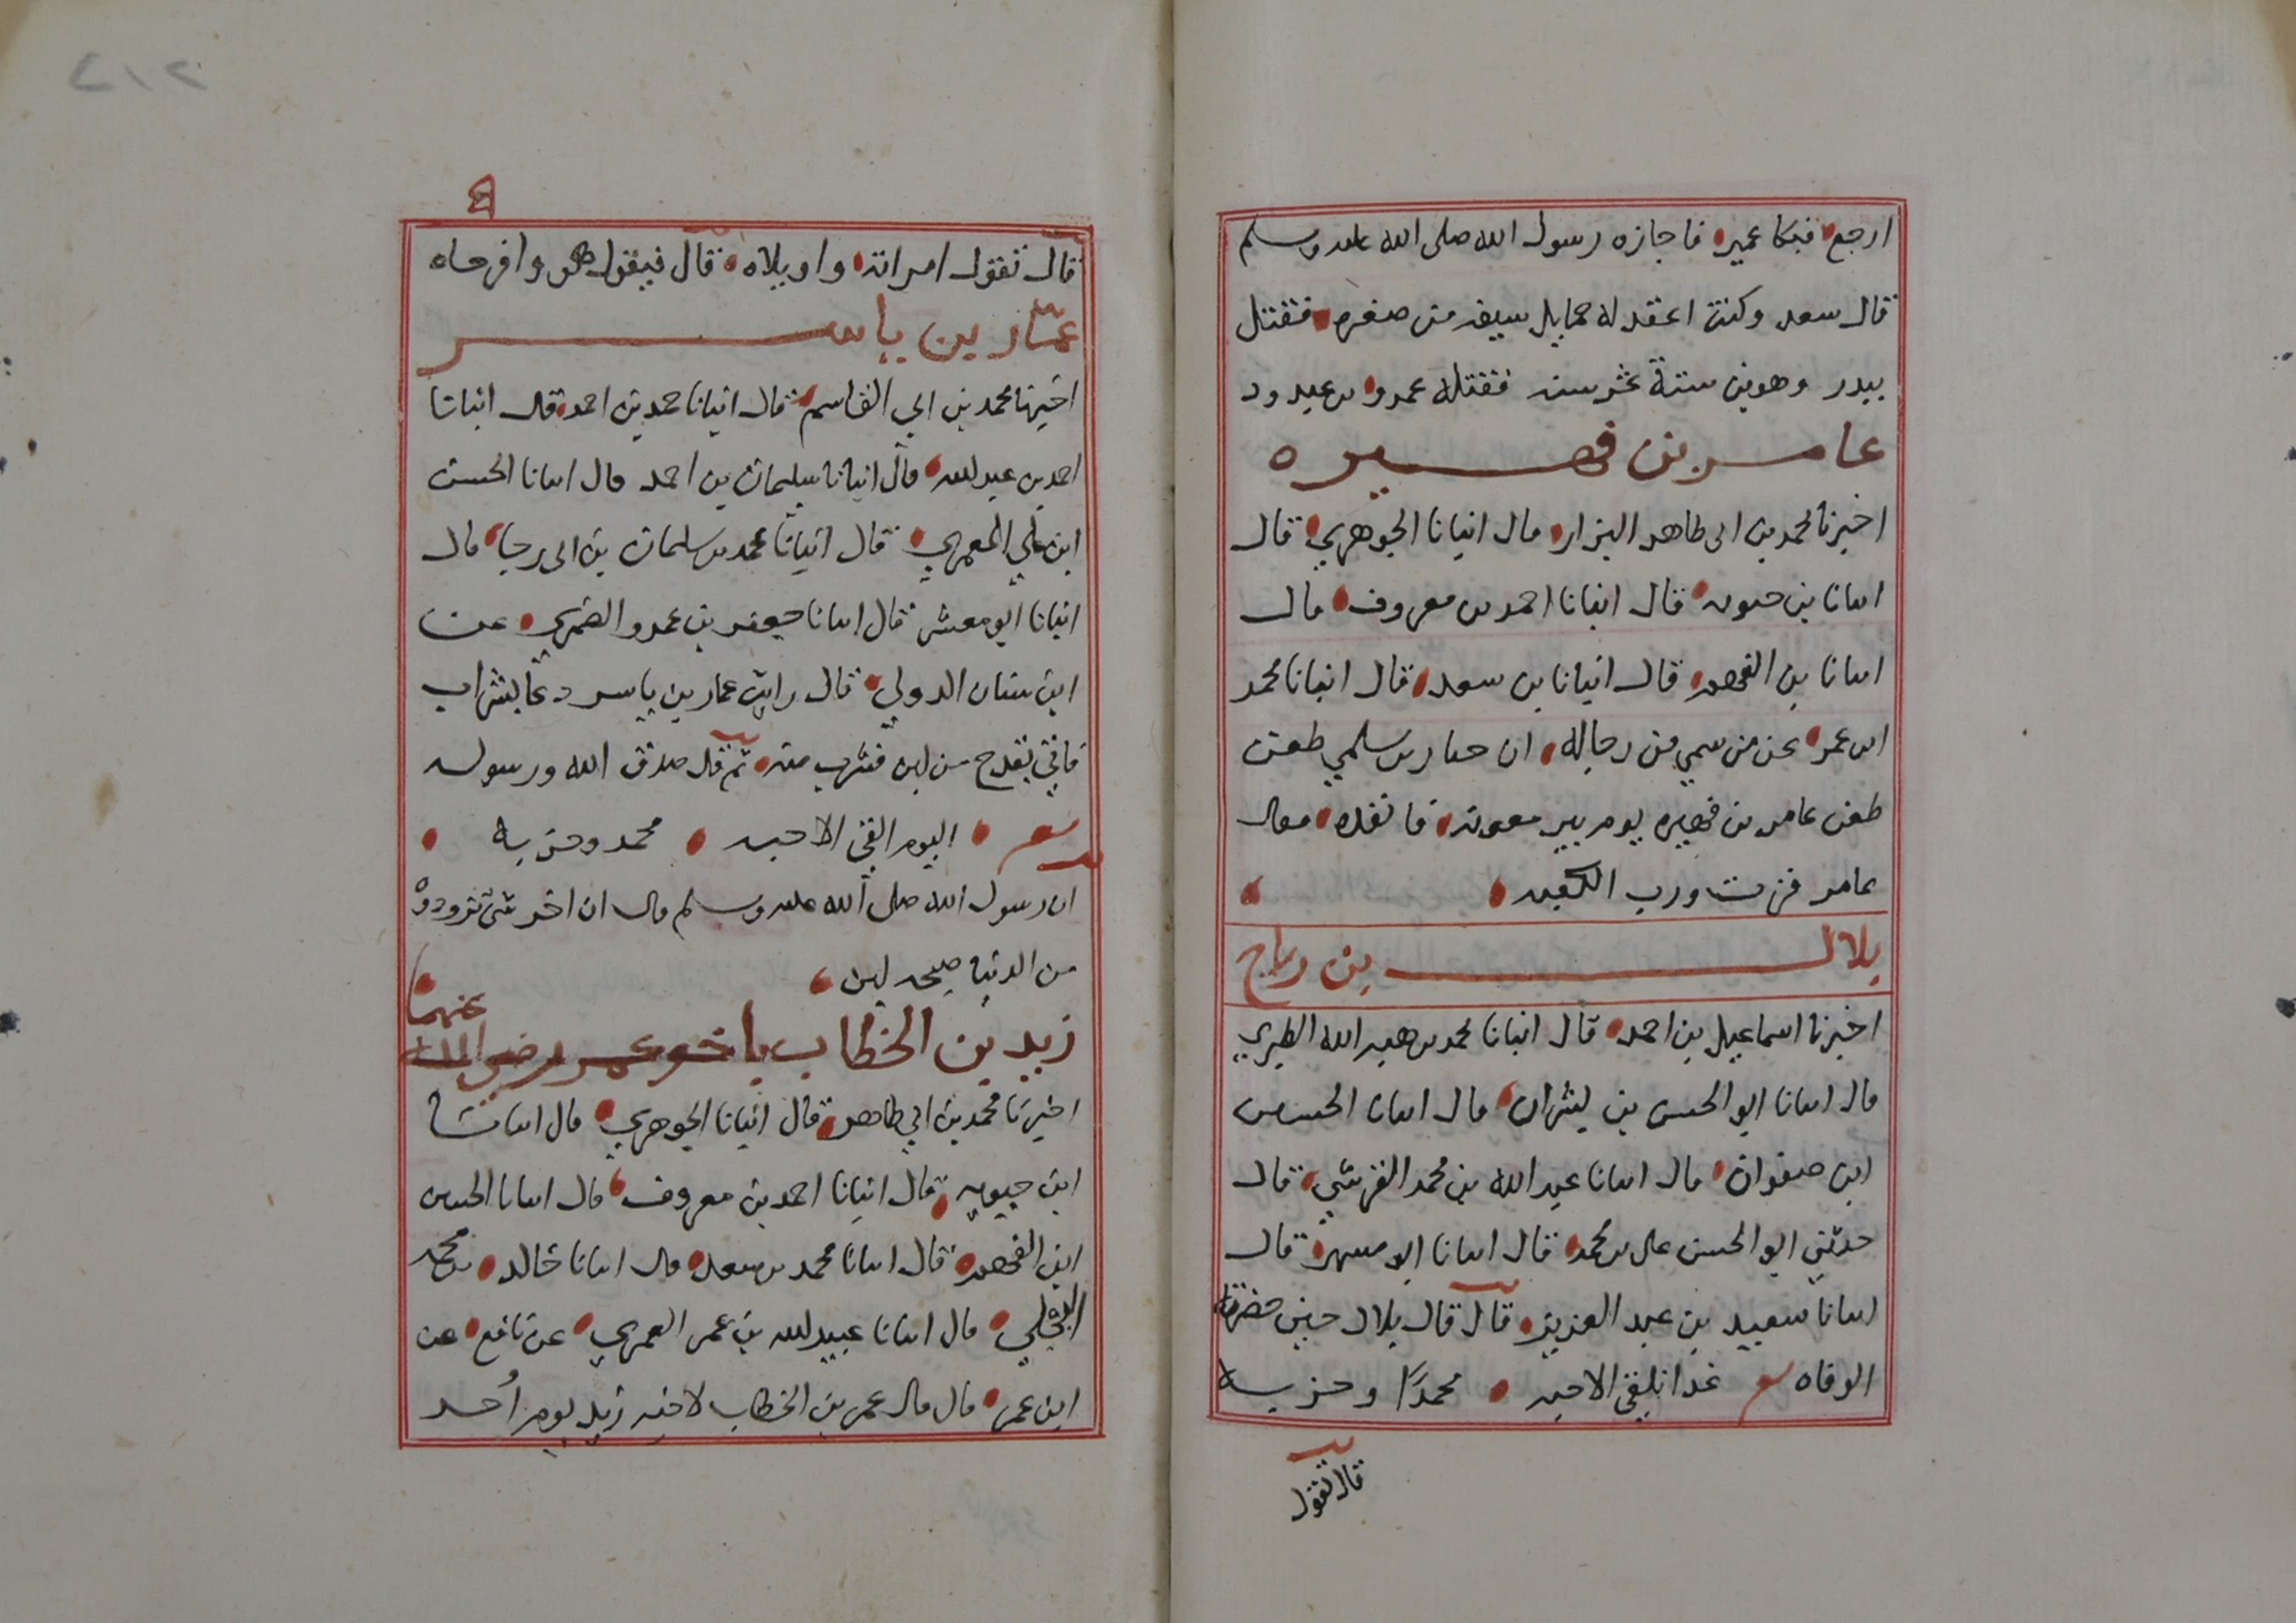 ارجع فبكا عمير فاجازه رسول الله صلى الله عليه وسلم
قال سعد وكنت اعقد له حمايل سيفه من صغره فقتل
ببدر وهو بن ستة عشر سنه فقتله عمرو بن عبد ود
عامر بن فهيره
اخبرنا محمد بن ابى طاهر البزار قال انبانا الجوهري قال
انبانا بن حيويه قال انبانا احمد بن معروف قال
انبانا بن الفهم قال انبانا بن سعد قال انبانا محمد
ابن عمر عن من سمي من رجاله ان جبار بن سلمي طعن
طعن عامر بن فهيره يوم بير معونه فانفده فقال
عامر فزت ورب الكعبه
بلال بن رباح
اخبرنا اسماعيل بن احمد قال انبانا محمد بن هبه الله الطبري
قال انبانا ابو الحسن بن بشران قال انبانا الحسين
ابن صفوان قال انبانا عبد الله بن محمد القرشي قال
حدثني ابو الحسن على بن محمد قال انبانا ابو مسهر قال
انبانا سعيد بن عبد العزيز قال قال بلال حين حضرته
الوفاه غدا نلقى الاحبه محمدًا وحزبه
قال تقول
٩
قال تقول امراته واويلاه قال فيقول هو وافرحاه
عمّار بن ياسر
اخبرنا محمد بن ابي القاسم قال انبانا حمد بن احمد قال انبانا
احمد بن عبد لله قال انبانا سليمان بن احمد قال انبانا الحسن
ابن علي المعمري قال انبانا محمد بن سلمان بن ابى رجا قال
انبانا ابو معشر قال انبانا جعفر بن عمرو الضمري عن
ابن سنان الدولي قال رايت عمار بن ياسر دعا بشراب
فاتي بقدح من لبن فشرب منه ثم قال صدق الله ورسوله
اليوم القى الاحبه محمد وحزبه
ان رسول الله صلى الله عليه وسلم قال ان اخر شئ تزوده
من الدنيا صيحه لبن
زيد بن الخطاب اخو عمر رضي الله عنهما
اخبرنا محمد بن ابي طاهر قال انبانا الجوهري قال انبانا
ابن حيويه قال انبانا احمد بن معروف قال انبانا الحسين
ابن الفهم قال انبانا محمد بن سعد قال انبانا خالد بن محمد
البجلي قال انبانا عبيد لله بن عمر العمري عن نافع عن
ابن عمر قال قال عمر بن الخطاب لاخيه زيد يوم اُحد